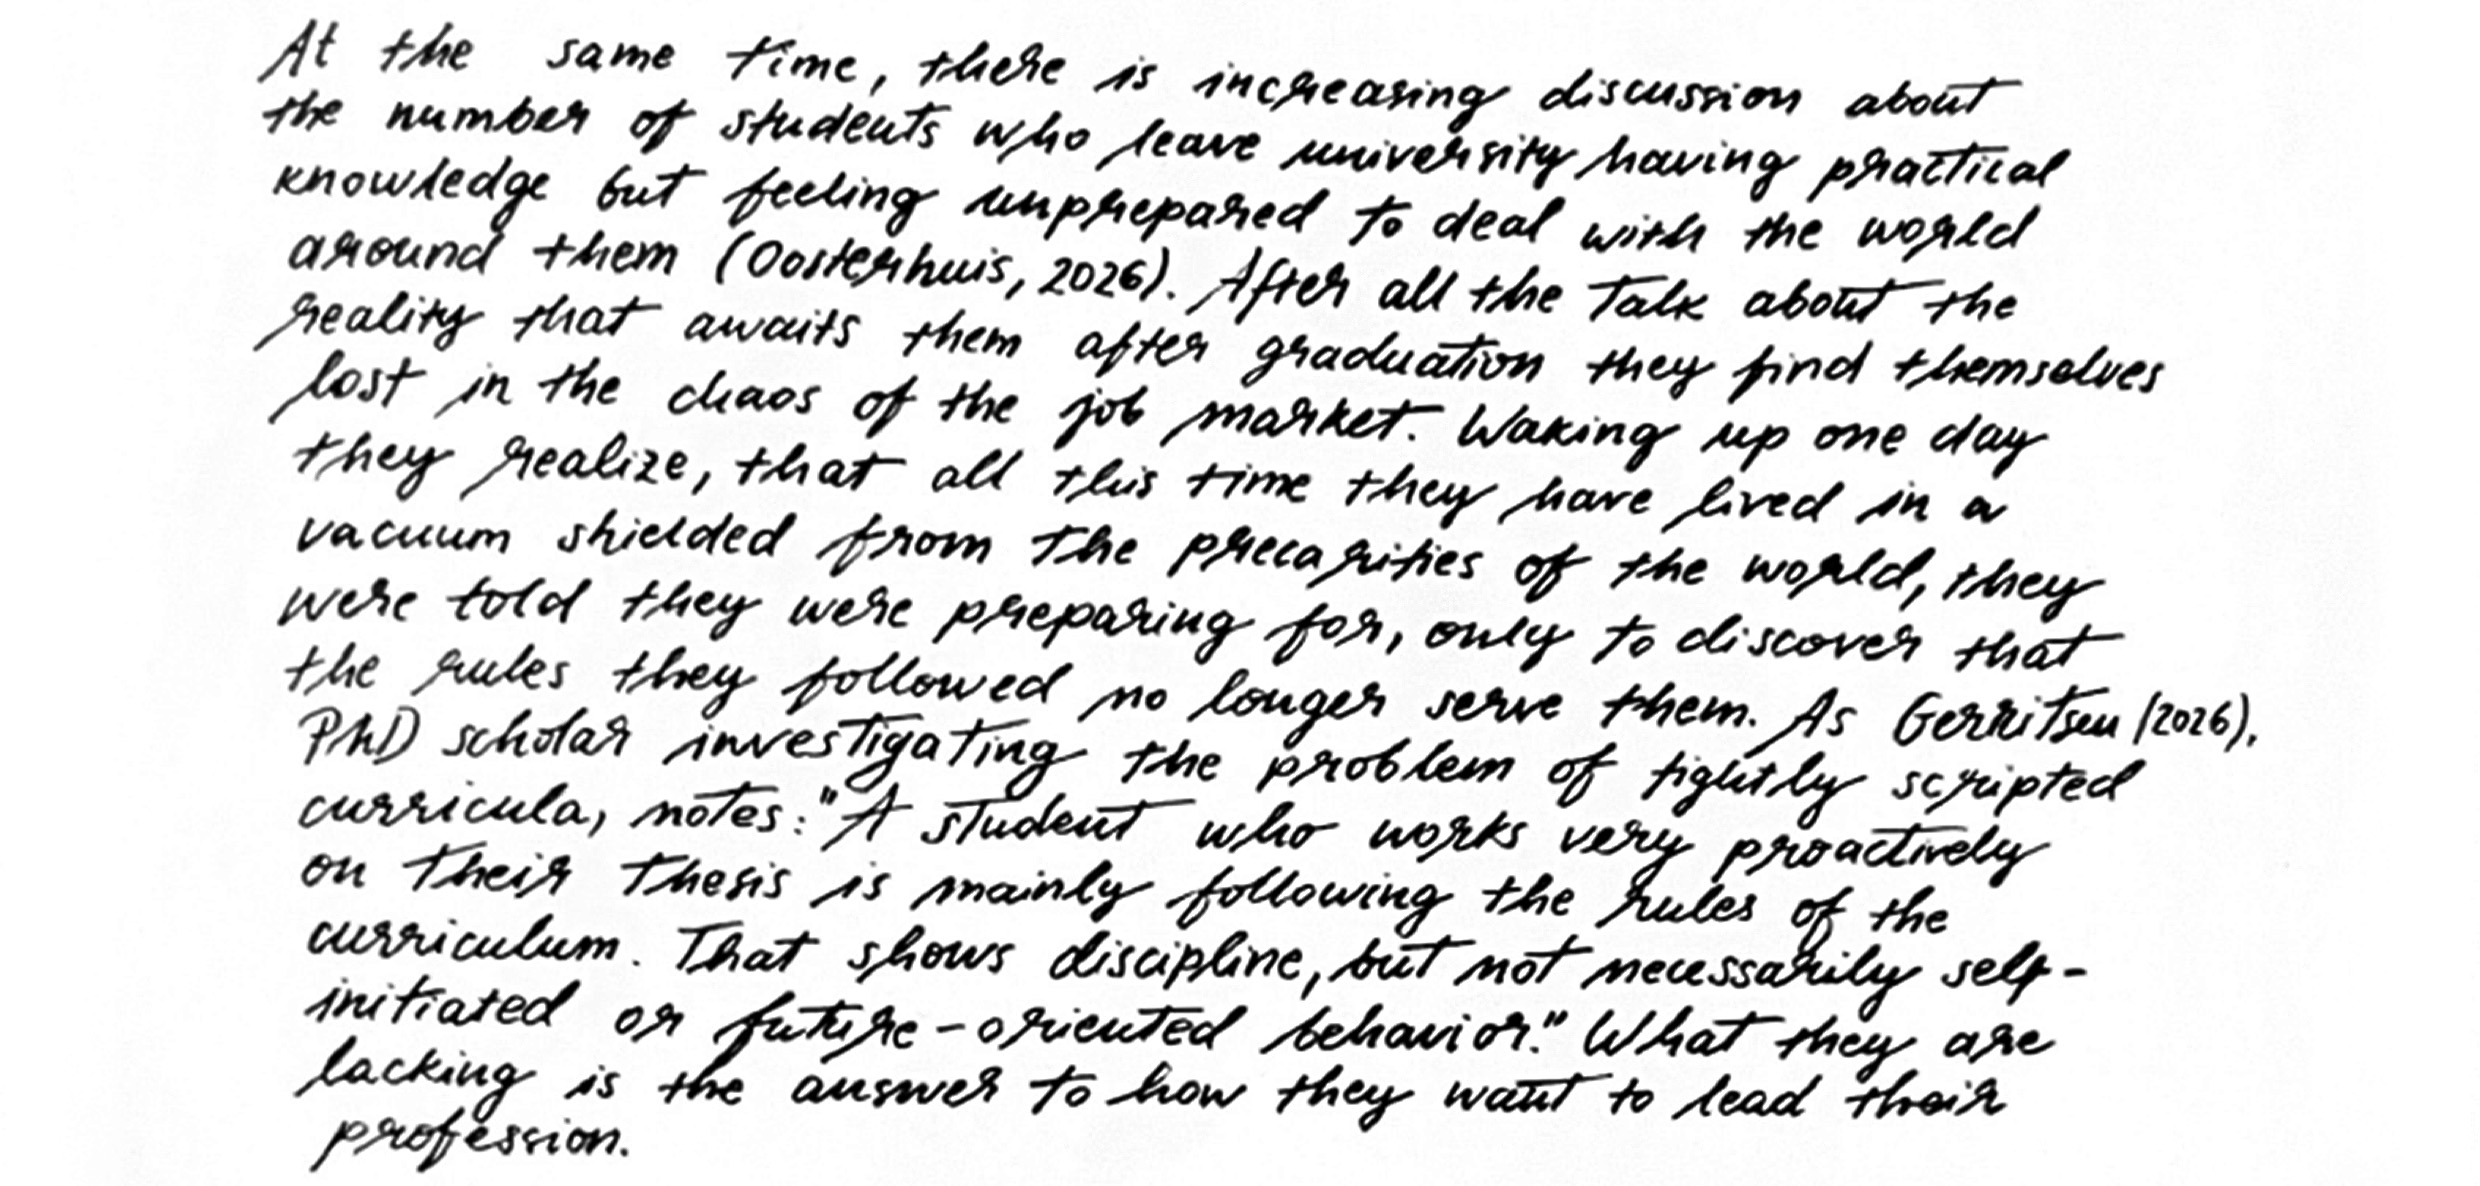 At the same time, there is increasing discussion about
the number of students who leave university having practical
knowledge but feeling unprepared to deal with the world
around them (Oosterhuis, 2026). After all the talk about the
reality that awaits them after graduation they find themselves
lost in the chaos of the job market. Waking up one day
they realize, that all this time they have lived in a
vacuum shielded from the precarities of the world, they
were told they were preparing for, only to discover that
the rules they followed no longer serve them. As Gerritsen (2026),
PhD scholar investigating the problem of tightly scripted
curricula, notes: "A student who works very proactively
on their thesis is mainly following the rules of the
curriculum. That shows discipline, but not necessarily self-
initiated or future-oriented behavior." What they are
lacking is the answer to how they want to lead their
profession.